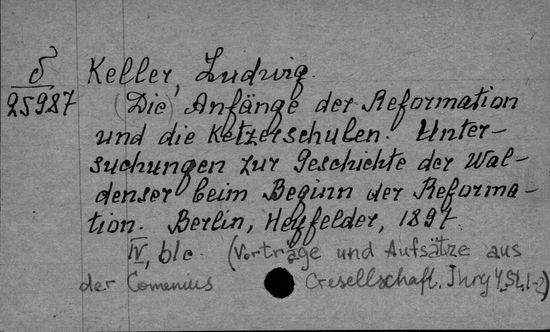 δ Keller, Ludwig.
25987 (Die) Anfänge der Reformation
und die Ketzerschulen. Unter-
suchungen zur Geschichte der Wal-
denser beim Beginn der Reforma-
tion. Berlin, Heyfelder, 1897.
IV, (Vorträge und Aufsätze aus
der Comenius Gesellschaft.